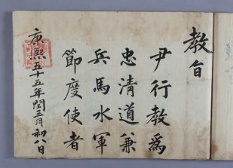 教旨
尹行教爲
忠清道兼
兵馬水軍
節度使者
康熙五十五年閏三月初八日